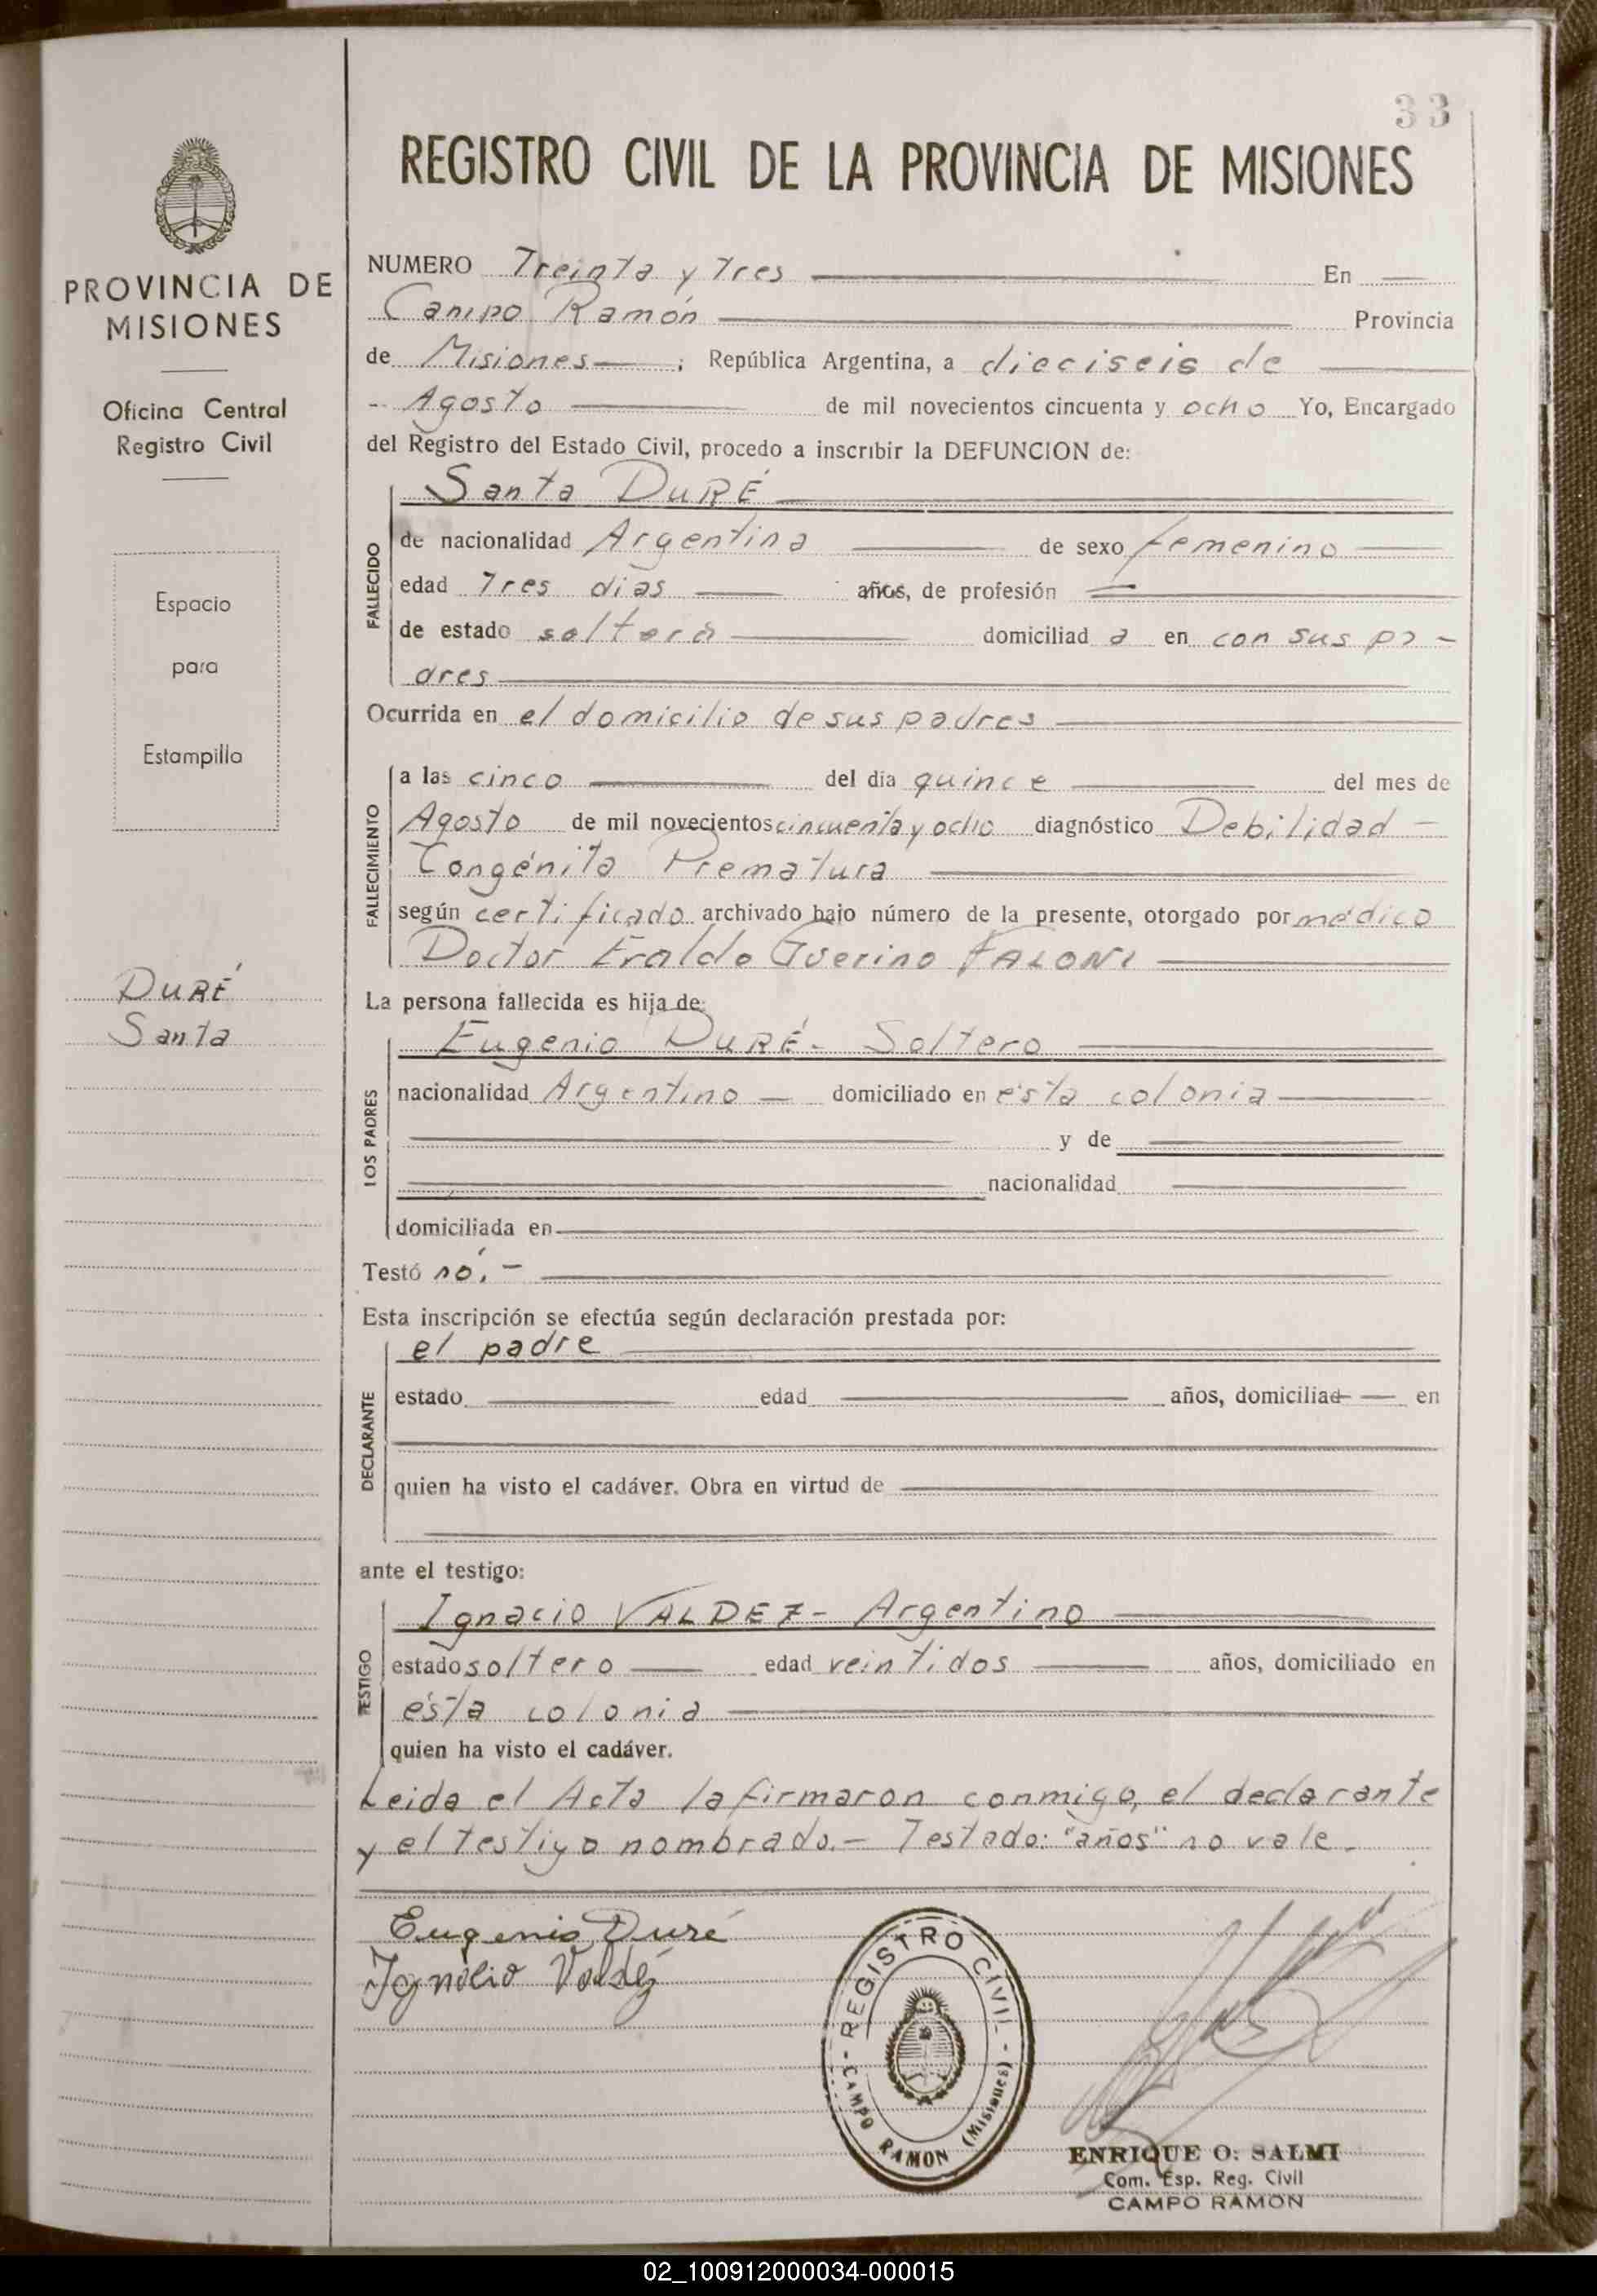 33
REGISTRO CIVIL DE LA PROVINCIA DE MISIONES
PROVINCIA DE
MISIONES
Oficina Central
Registro Civil
Espacio
para
Estampilla
DURÉ
Santa
NUMERO Treinta y Tres En
Campo Ramón Provincia
de Misiones ; República Argentina, a dieciseis de
Agosto de mil novecientos cincuenta y ocho Yo, Encargado
del Registro del Estado Civil, procedo a inscribir la DEFUNCION de:
Santa DURÉ
FALLECIDO
de nacionalidad Argentina de sexo femenino
edad Tres dias años, de profesión
de estado soltera domiciliad a en con sus pa-
dres
Ocurrida en el domicilio de sus padres
FALLECIMIENTO
a las cinco del día quince del mes de
Agosto de mil novecientos cincuenta y ocho diagnóstico Debilidad -
Congénita Prematura
según certificado archivado bajo número de la presente, otorgado por médico
Doctor Eraldo Guerino FALONI
La persona fallecida es hija de:
Eugenio DURÉ - Soltero
LOS PADRES
nacionalidad Argentino - domiciliado en ésta colonia
y de
nacionalidad
domiciliada en
Testó nó.-
Esta inscripción se efectúa según declaración prestada por:
el padre
DECLARANTE
estado edad años, domiciliad en
quien ha visto el cadáver. Obra en virtud de
ante el testigo:
Ignacio VALDEZ - Argentino
TESTIGO
estado soltero edad veintidos años, domiciliado en
ésta colonia
quien ha visto el cadáver.
Leida el Acta la firmaron conmigo, el declarante
y el testigo nombrado.- Testado: "años" no vale.
Eugenio Duré
Ignacio Valdéz
- REGISTRO CIVIL -
CAMPO RAMON (Misiones)
ENRIQUE O. SALMI
Com. Esp. Reg. Civil
CAMPO RAMON
02_100912000034-000015